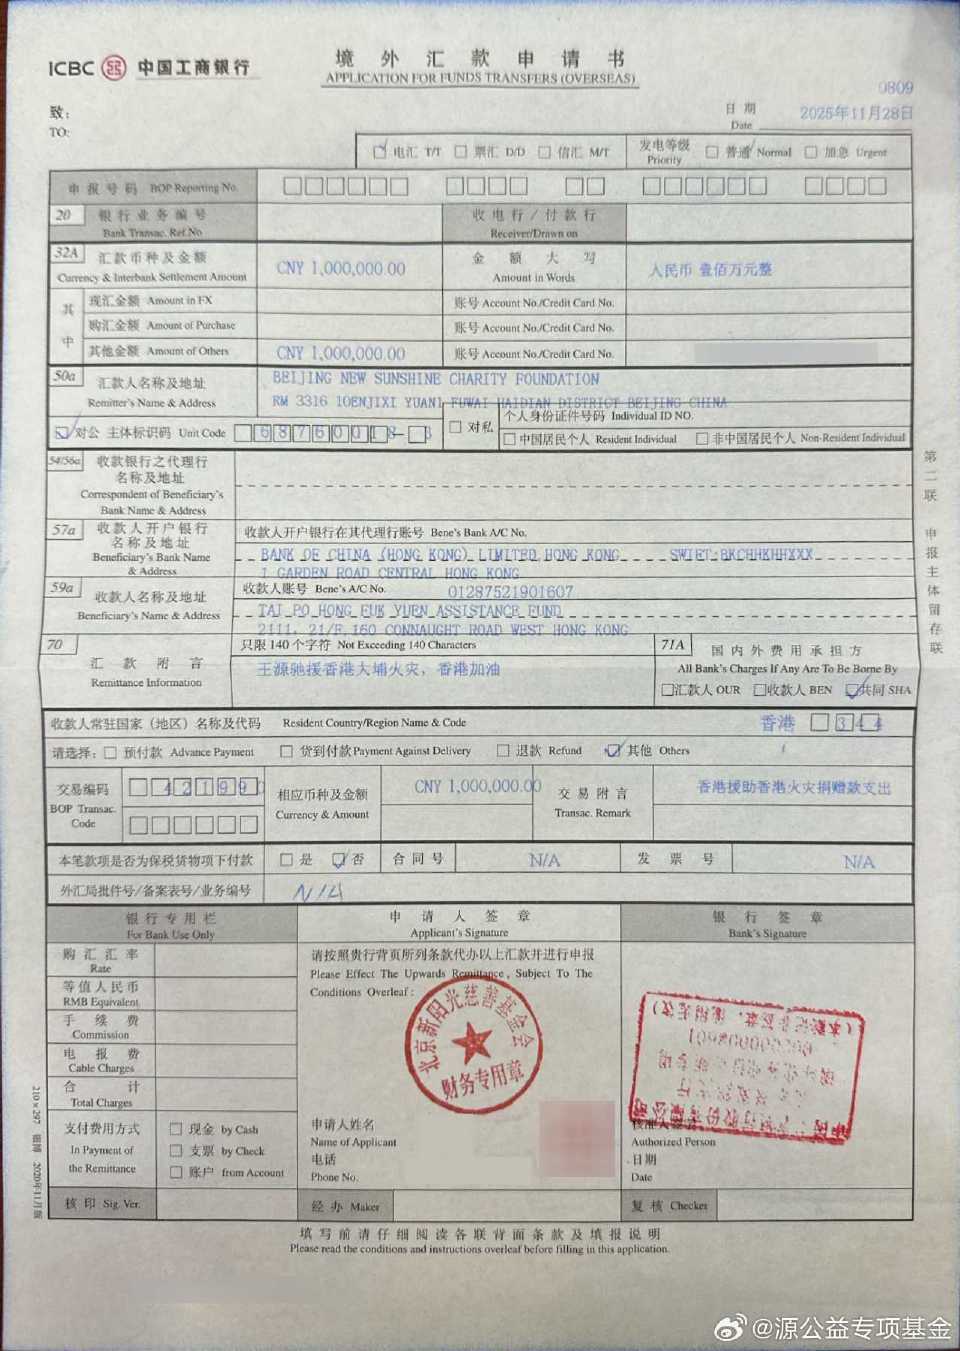 ICBC 中国工商银行
境外汇款申请书
APPLICATION FOR FUNDS TRANSFERS (OVERSEAS)
0809
致:
TO:
日期 2025年11月28日
Date
电汇 T/T 票汇 D/D 信汇 M/T 发电等级 Priority 普通 Normal 加急 Urgent
申报号码 BOP Reporting No.
20 银行业务编号 Bank Transac. Ref.No 收电行/付款行 Receiver/Drawn on
32A 汇款币种及金额 Currency & Interbank Settlement Amount CNY 1,000,000.00 金额大写 Amount in Words 人民币 壹佰万元整
其中
现汇金额 Amount in FX 账号 Account No./Credit Card No.
购汇金额 Amount of Purchase 账号 Account No./Credit Card No.
其他金额 Amount of Others CNY 1,000,000.00 账号 Account No./Credit Card No.
50a 汇款人名称及地址 Remitter's Name & Address
BEIJING NEW SUNSHINE CHARITY FOUNDATION
RM 3316 10ENJIXI YUAN1 FUWAI HAIDIAN DISTRICT BEIJING CHINA
对公 主体标识码 Unit Code 对私 个人身份证件号码 Individual ID NO.
中国居民个人 Resident Individual 非中国居民个人 Non-Resident Individual
54/56a 收款银行之代理行
名称及地址
Correspondent of Beneficiary's
Bank Name & Address
57a 收款人开户银行
名称及地址
Beneficiary's Bank Name
& Address
收款人开户银行在其代理行账号 Bene's Bank A/C No.
BANK OF CHINA (HONG KONG) LIMITED HONG KONG SWIFT:BKCHHKHHXXX
1 GARDEN ROAD CENTRAL HONG KONG
59a 收款人名称及地址
Beneficiary's Name & Address
收款人账号 Bene's A/C No. 01287521901607
TAI PO HONG FUK YUEN ASSISTANCE FUND
2111, 21/F,160 CONNAUGHT ROAD WEST HONG KONG
70 汇款附言
Remittance Information
只限140个字符 Not Exceeding 140 Characters
王源驰援香港大埔火灾，香港加油
71A 国内外费用承担方
All Bank's Charges If Any Are To Be Borne By
汇款人 OUR 收款人 BEN 共同 SHA
收款人常驻国家（地区）名称及代码 Resident Country/Region Name & Code 香港 344
请选择: 预付款 Advance Payment 货到付款 Payment Against Delivery 退款 Refund 其他 Others
交易编码
BOP Transac.
Code
421990
相应币种及金额
Currency & Amount
CNY 1,000,000.00
交易附言
Transac. Remark
香港援助香港火灾捐赠款支出
本笔款项是否为保税货物项下付款 是 否 合同号 N/A 发票号 N/A
外汇局批件号/备案表号/业务编号 N/A
银行专用栏
For Bank Use Only
申请人签章
Applicant's Signature
银行签章
Bank's Signature
购汇汇率
Rate
等值人民币
RMB Equivalent
手续费
Commission
电报费
Cable Charges
合计
Total Charges
支付费用方式
In Payment of
the Remittance
现金 by Cash
支票 by Check
账户 from Account
核印 Sig. Ver.
请按照贵行背页所列条款代办以上汇款并进行申报
Please Effect The Upwards Remittance, Subject To The
Conditions Overleaf:
北京新阳光慈善基金会
财务专用章
申请人姓名
Name of Applicant
电话
Phone No.
经办 Maker
核准人签字
Authorized Person
日期
Date
复核 Checker
填写前请仔细阅读各联背面条款及填报说明
Please read the conditions and instructions overleaf before filling in this application.
第二联 申报主体留存联
210×297 2020年11月版
@源公益专项基金